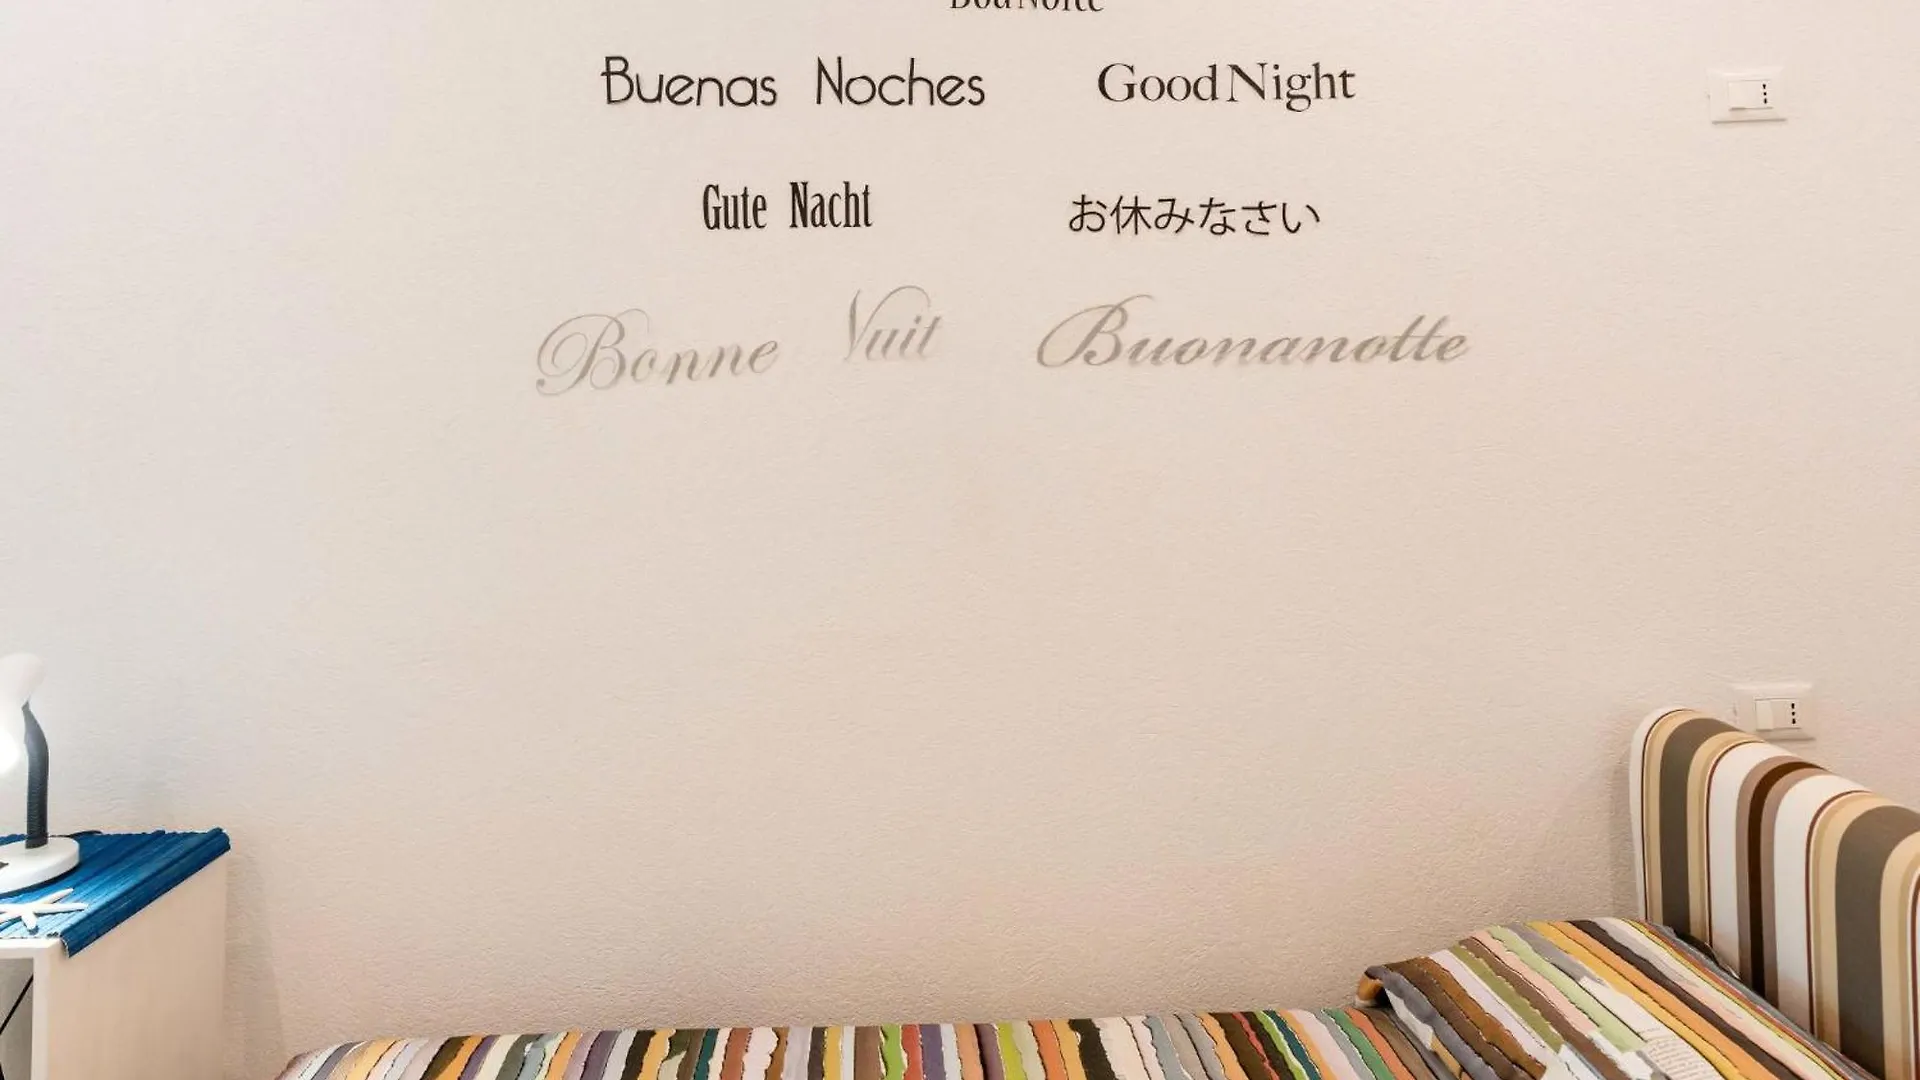 Boa Noite
Buenas Noches Good Night
Gute Nacht お休みなさい
Bonne Nuit Buonanotte